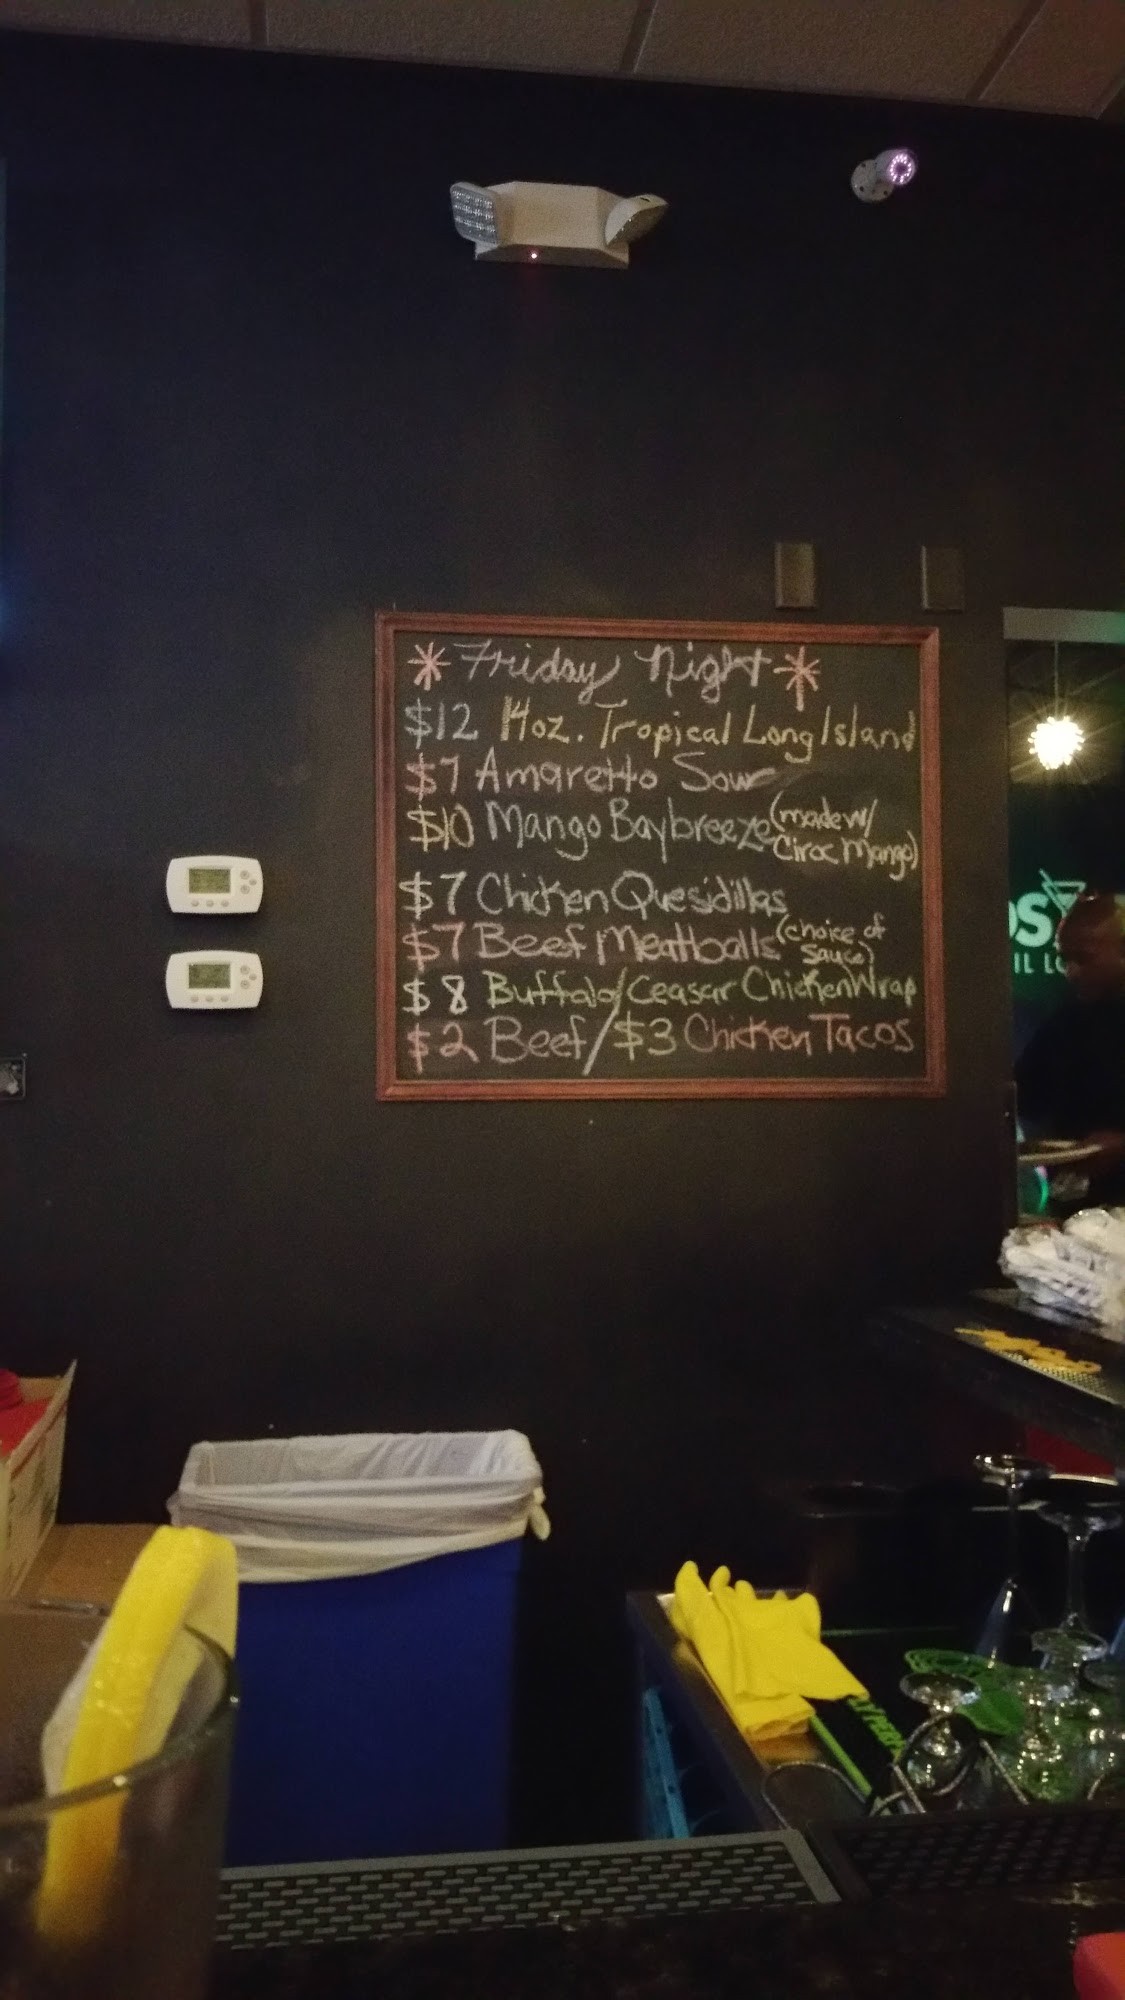 * Friday Night *
$12 14oz. Tropical Long Island
$7 Amaretto Sour
$10 Mango Baybreeze (made w/
Ciroc Mango)
$7 Chicken Quesidillas
$7 Beef Meatballs (choice of
sauce)
$8 Buffalo/Ceasar Chicken Wrap
$2 Beef/$3 Chicken Tacos
OS
IL LO